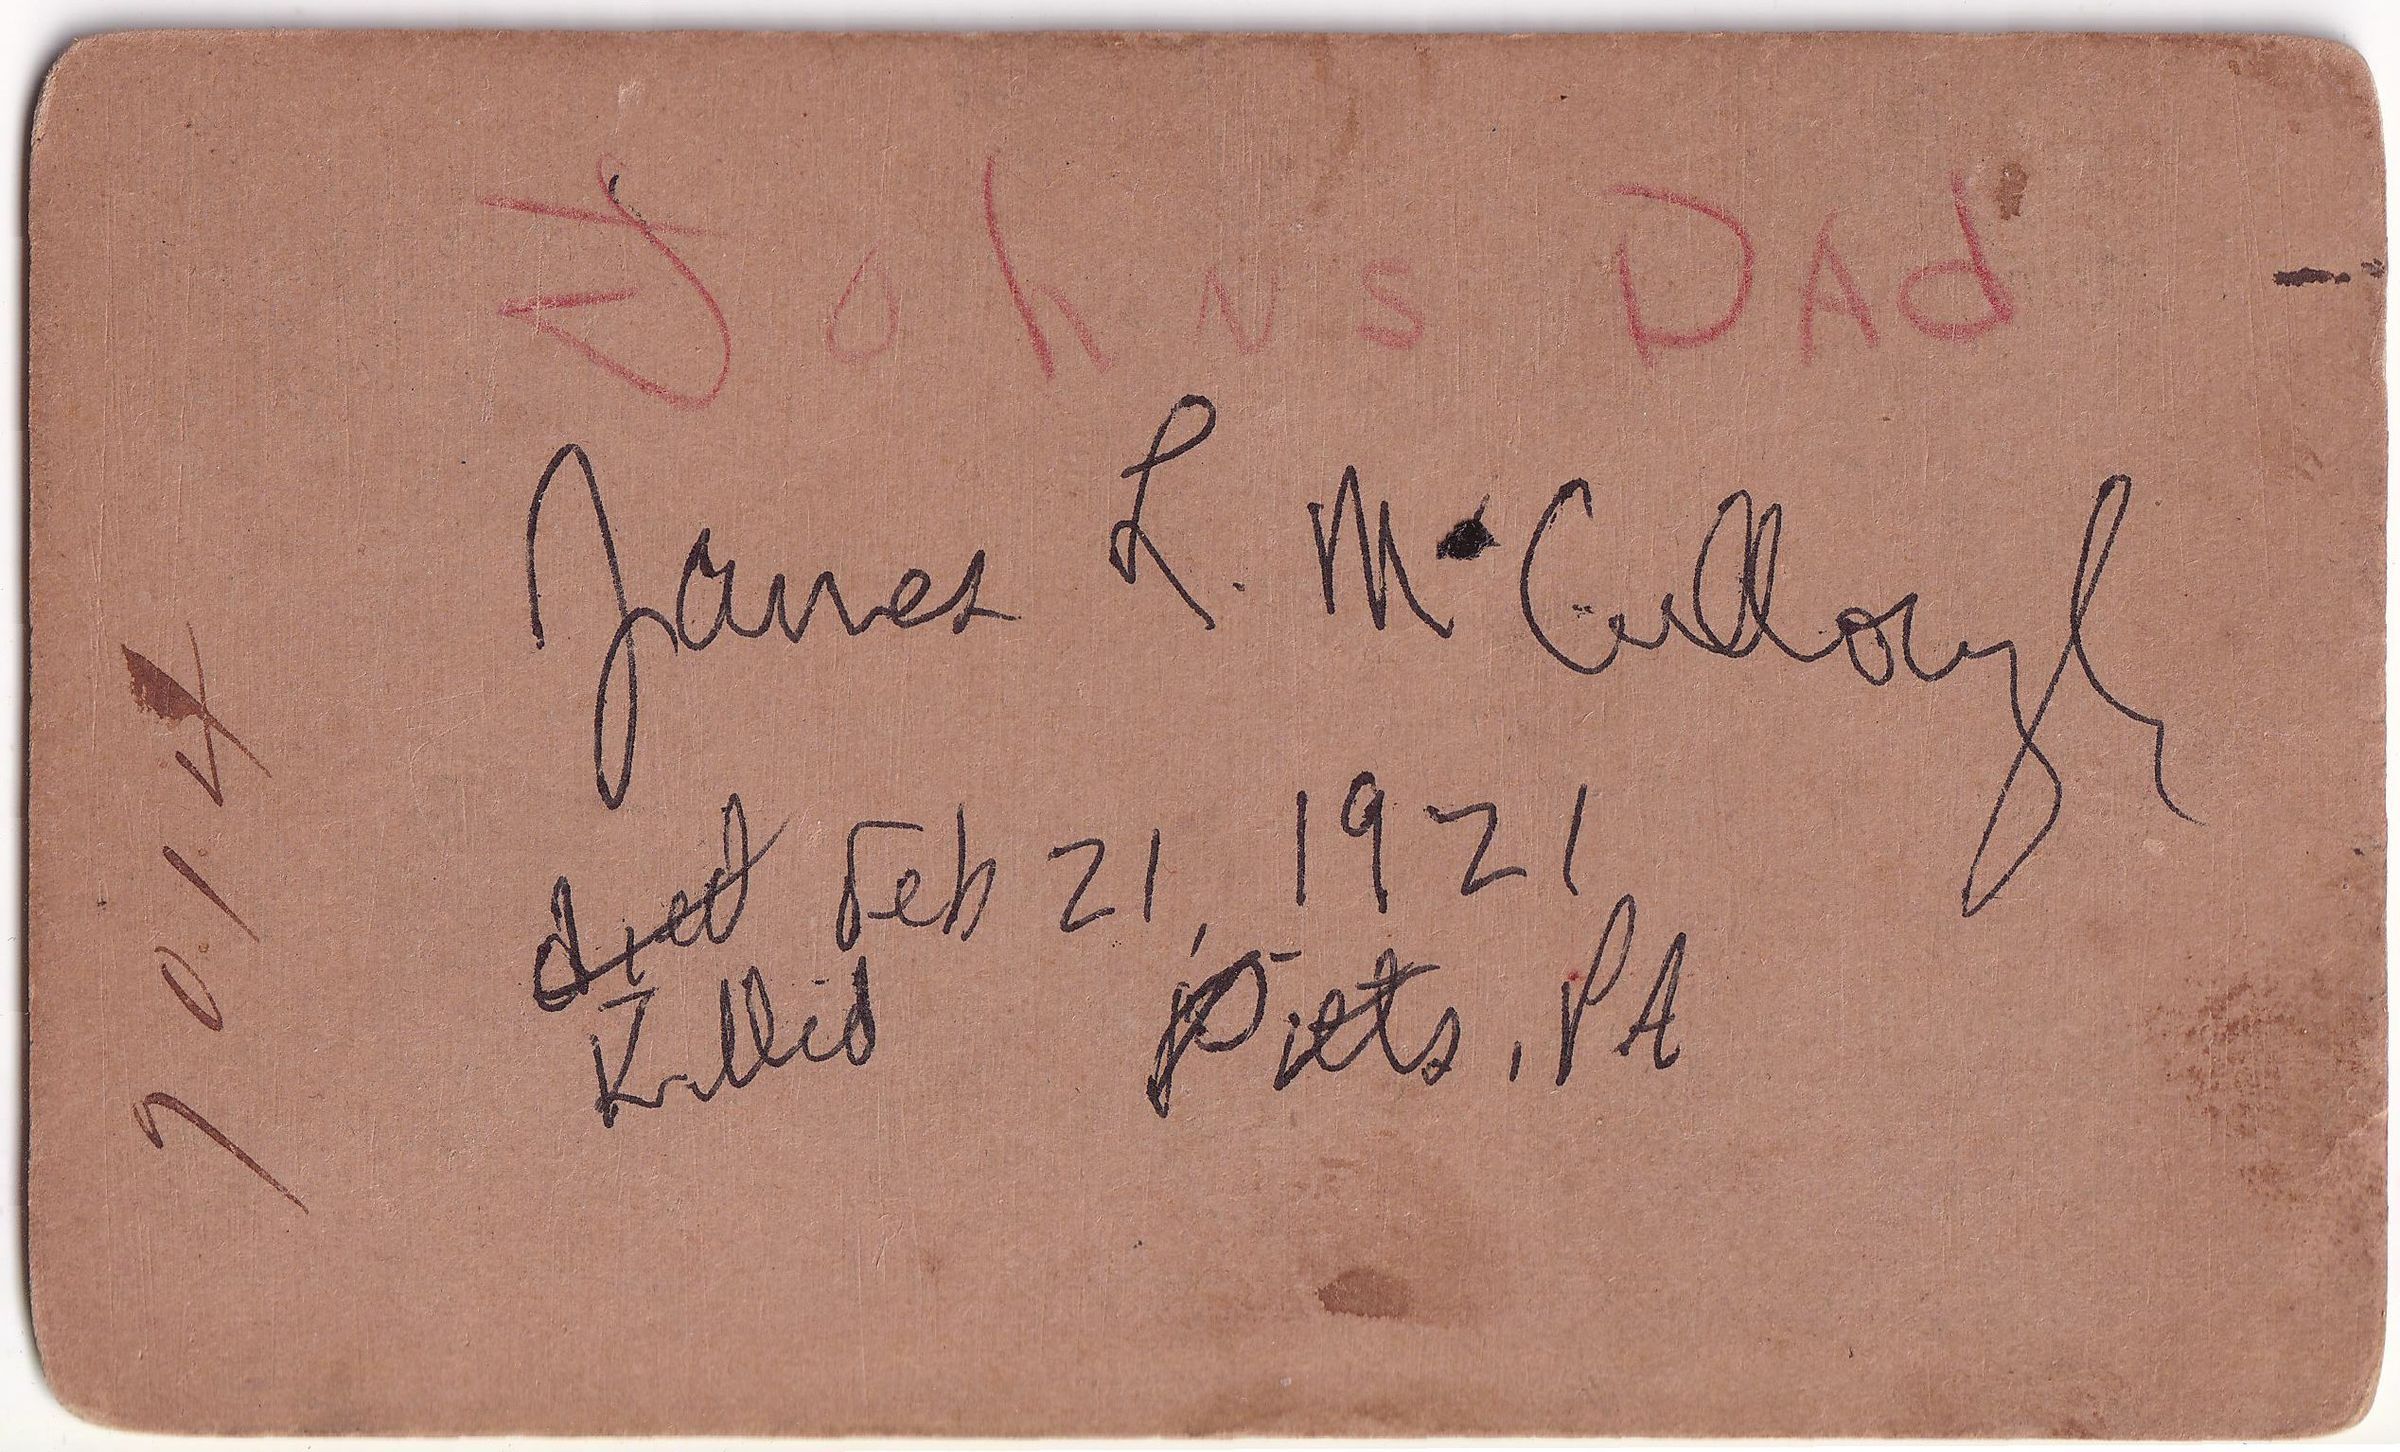 Johns DAd
James L. McCullough
died Feb 21, 1921
Killid Pitts, PA
7 0.1.4